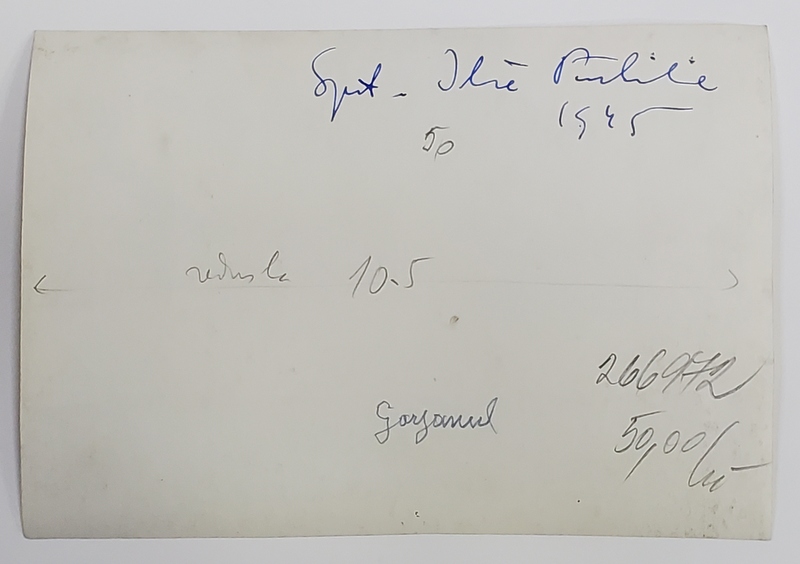 Spit. Ilie Pintilie
1945
50
redus la 10.5
266972
Gorjanul
50,00 lei